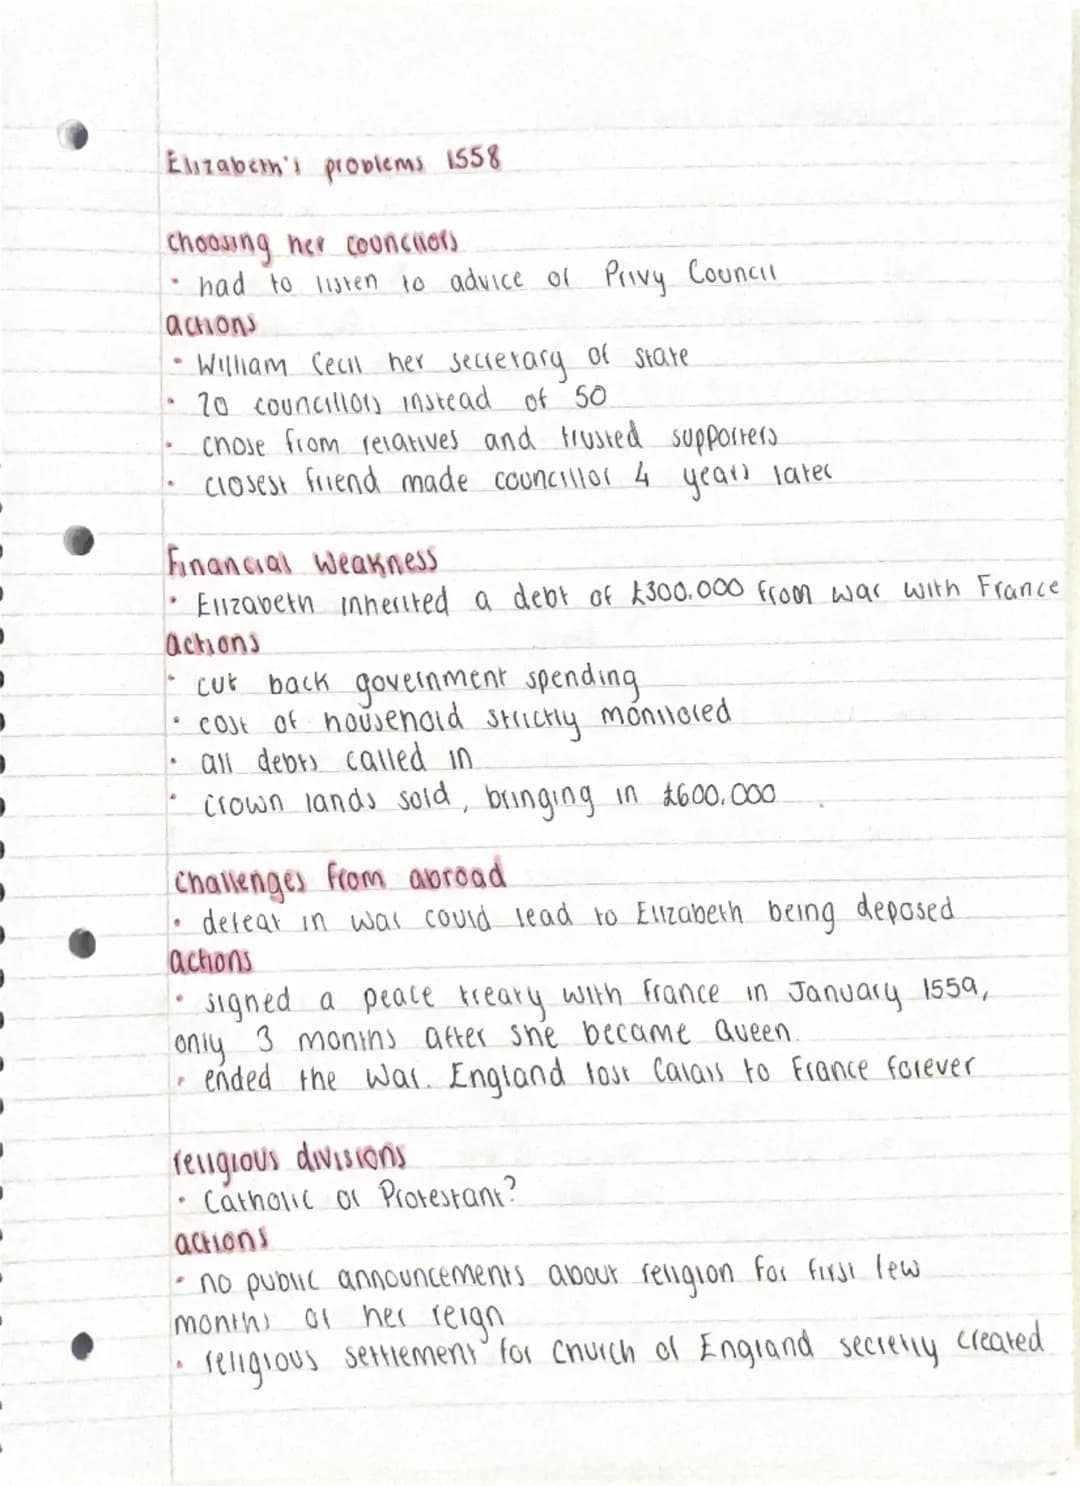 Elizabeth's problems 1558
choosing her councillors
• had to listen to advice of Privy Council
actions
• William Cecil her secretary of state
• 20 councillors instead of 50
• chose from relatives and trusted supporters
• closest friend made councillor 4 years later
Financial weakness
• Elizabeth inherited a debt of £300,000 from war with France
actions
• cut back government spending
• cost of household strictly monitored
• all debts called in
• crown lands sold, bringing in £600,000
challenges from abroad
• defeat in war could lead to Elizabeth being deposed
actions
• signed a peace treaty with France in January 1559,
only 3 months after she became Queen.
• ended the war. England lost Calais to France forever
religious divisions
• Catholic or Protestant?
actions
• no public announcements about religion for first few
months of her reign
• religious settlement for Church of England secretly created